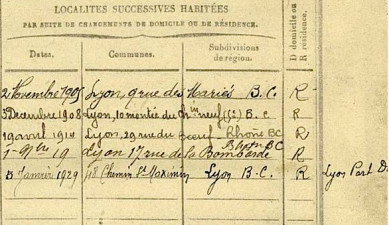 LOCALITES SUCCESSIVES HABITÉES
PAR SUITE DE CHANGEMENTS DE DOMICILE OU DE RÉSIDENCE.
Dates. Communes. Subdivisions de région. D domicile ou R résidence.
2 Novembre 1905 Lyon, 9 rue des B.C. R
3 Décembre 1908 Lyon, 10 montée du B.C. R
19 avril 1914 Lyon, 29 rue du Boeuf Rhône BC R
19 Lyon 17 rue de la Bombarde R
Janvier 1929 48 Chemin St Maximin Lyon B.C. R
Lyon Part D